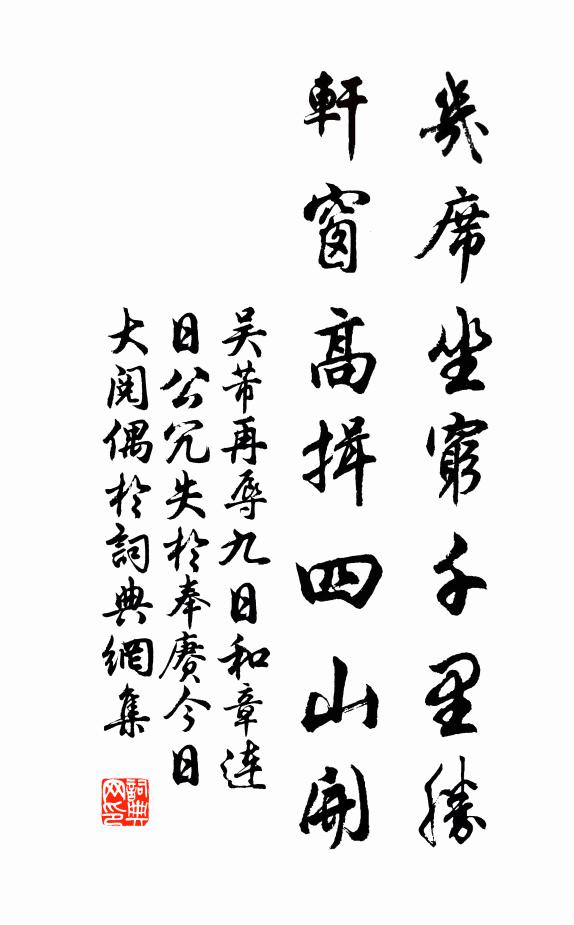 幾席坐窮千里勝
軒窗高揖四山開
吴芾再辱九日和章連
日公冗失於奉赓今日
大閱偶於詞典網集
詞典网印